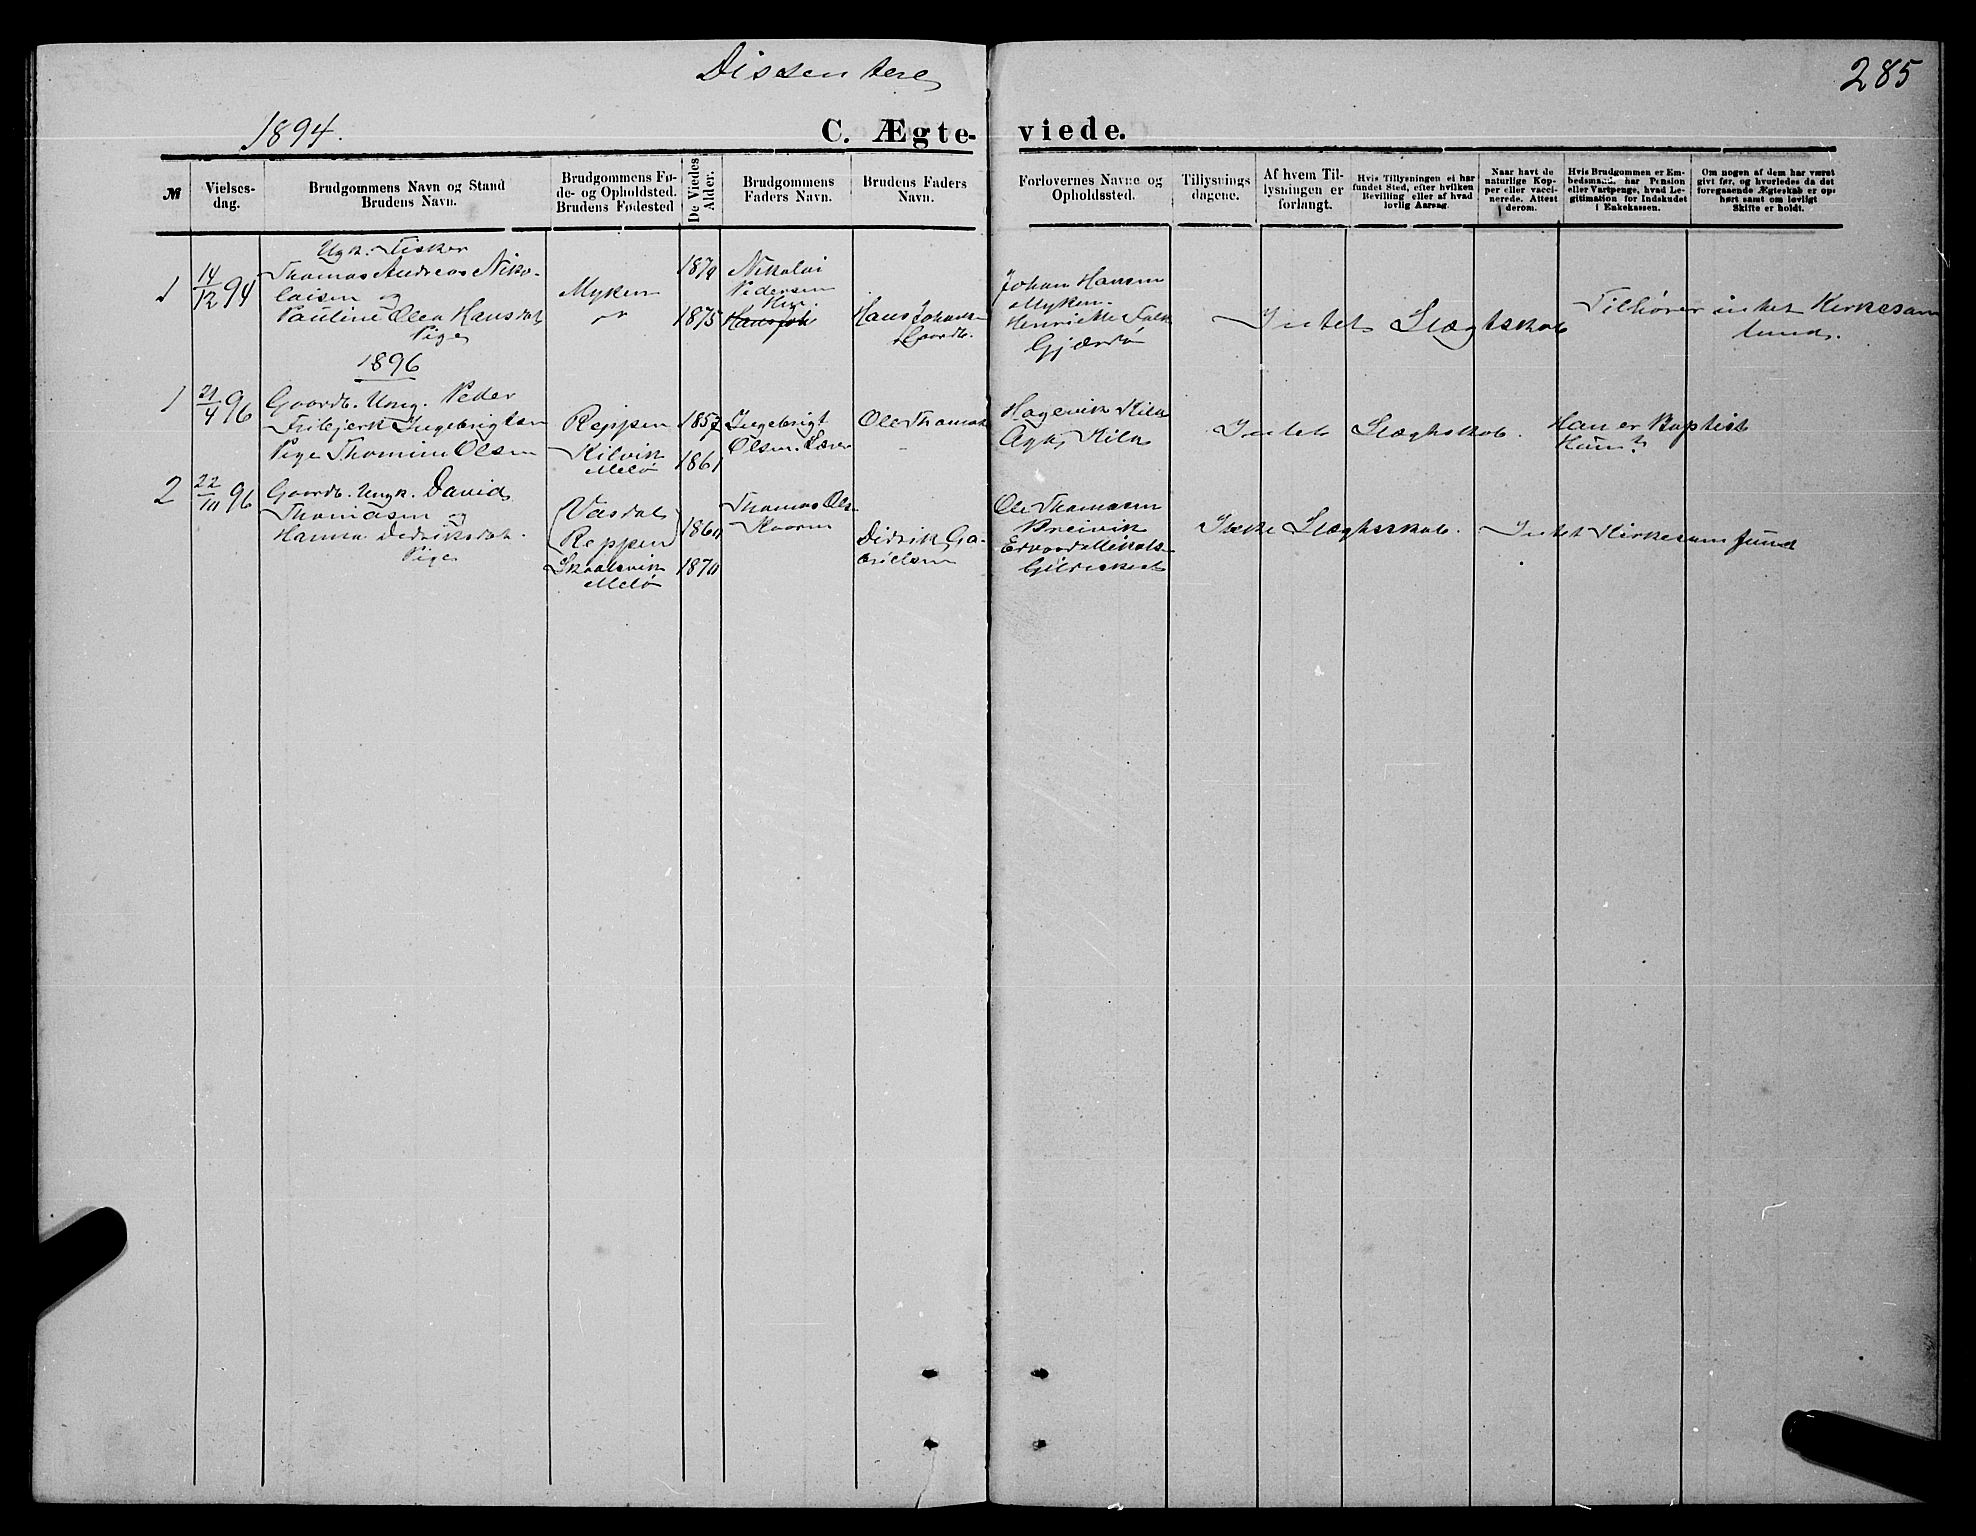 Dissentere
285
1894.
C. Ægte- viede.
№
Vielses-
dag.
Brudgommens Navn og Stand
Brudens Navn.
Brudgommens Fø-
de- og Opholdsted.
Brudens Fødested
De Viedes
Alder.
Brudgommens
Faders Navn.
Brudens Faders
Navn.
Forlovernes Navne og
Opholdssted.
Tillysnings
dagene.
Af hvem Til-
lysningen er
forlangt.
Hvis Tillysningen ei har
fundet Sted, efter hvilken
Bevilling eller af hvad
lovlig Aarsag.
Naar havt de
naturlige Kop-
per eller vacci-
nerede. Attest
derom.
Hvis Brudgommen er Em-
bedsmand, har Pension
eller Vartpenge, hvad Le-
gitimation for Indskudet
i Enkekassen.
Om nogen af dem har været
givt før, og hvorledes da det
foregaaende Ægteskab er op-
hørt samt om lovligt
Skifte er holdt.
1
14/12 94
Ugk. Fisker
Thomas Andreas Niko-
laisen og
Pauline Olea Hansdat
Pige
Myken
1875
Nikolai
Pedersen
Hans Joh
Hans Johan
Gaardb.
Johan Hansen
Myken.
Henriette Falk
Gjærdø
Intet Slægtskab
Tilhører intet Kirkesam
fund.
1896
1
21/4 96
Gaardb. Ung. Peder
Ingebrigtsen
Pige Thomine Olsen
Reppen
Kilvik
Melø
1857
1861
Ingebrigt
Olsen
Ole Thomas
Hagevik Kila
Kila
Intet Slægtskab.
Han er Baptist
Hun?
2
22/10 96
Gaardb. Ungk. David
Thomasen og
Hanna Dedriksdat.
Pige
Vasdal
Reppen
Skaalsvik
Melø
1860
1870
Thomas Ols
Didrik Ga-
brielsen
Ole Thomasen
Breivik
Gildeskaal
Ikke Slægtsskab.
Intet Kirkesamfund